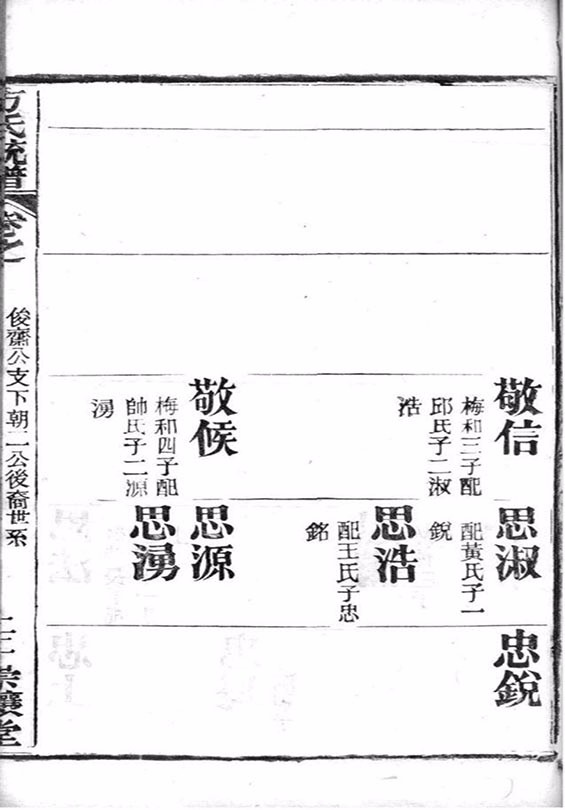 敬信
梅和三子配
邱氏子二淑
浩
敬候
梅和四子配
帥氏子二源
湧
思淑
配黃氏子一
銳
思浩
配王氏子忠
銘
思源
思湧
忠銳
方氏統譜
卷之一
俊齋公支下朝二公後裔世系
堂